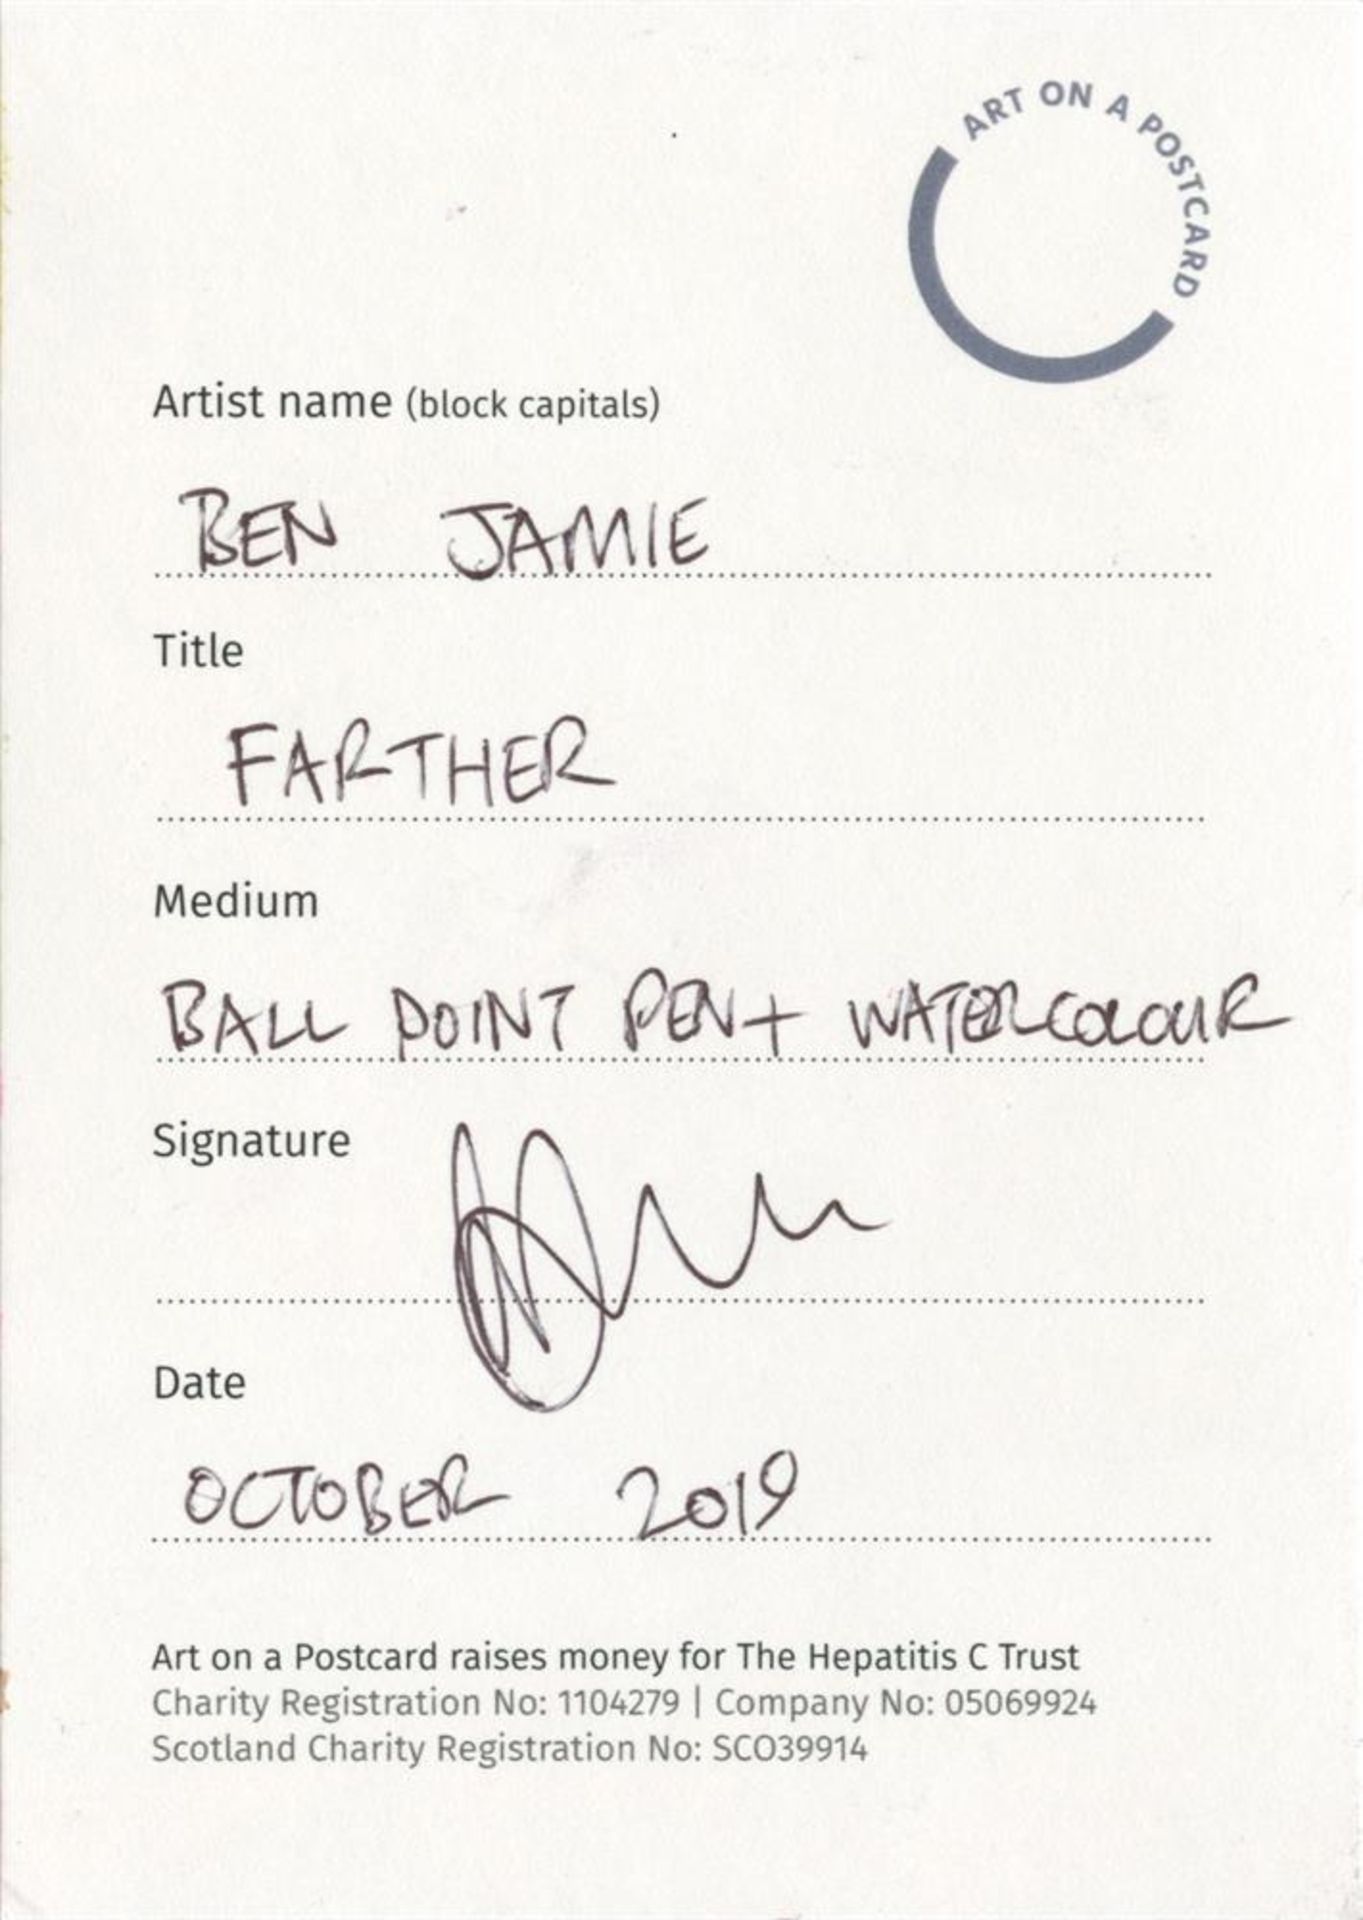 ART ON A POSTCARD
Artist name (block capitals)
BEN JAMIE
Title
FARTHER
Medium
BALL POINT PEN + WATERCOLOUR
Signature
Date
OCTOBER 2019
Art on a Postcard raises money for The Hepatitis C Trust
Charity Registration No: 1104279 | Company No: 05069924
Scotland Charity Registration No: SCO39914